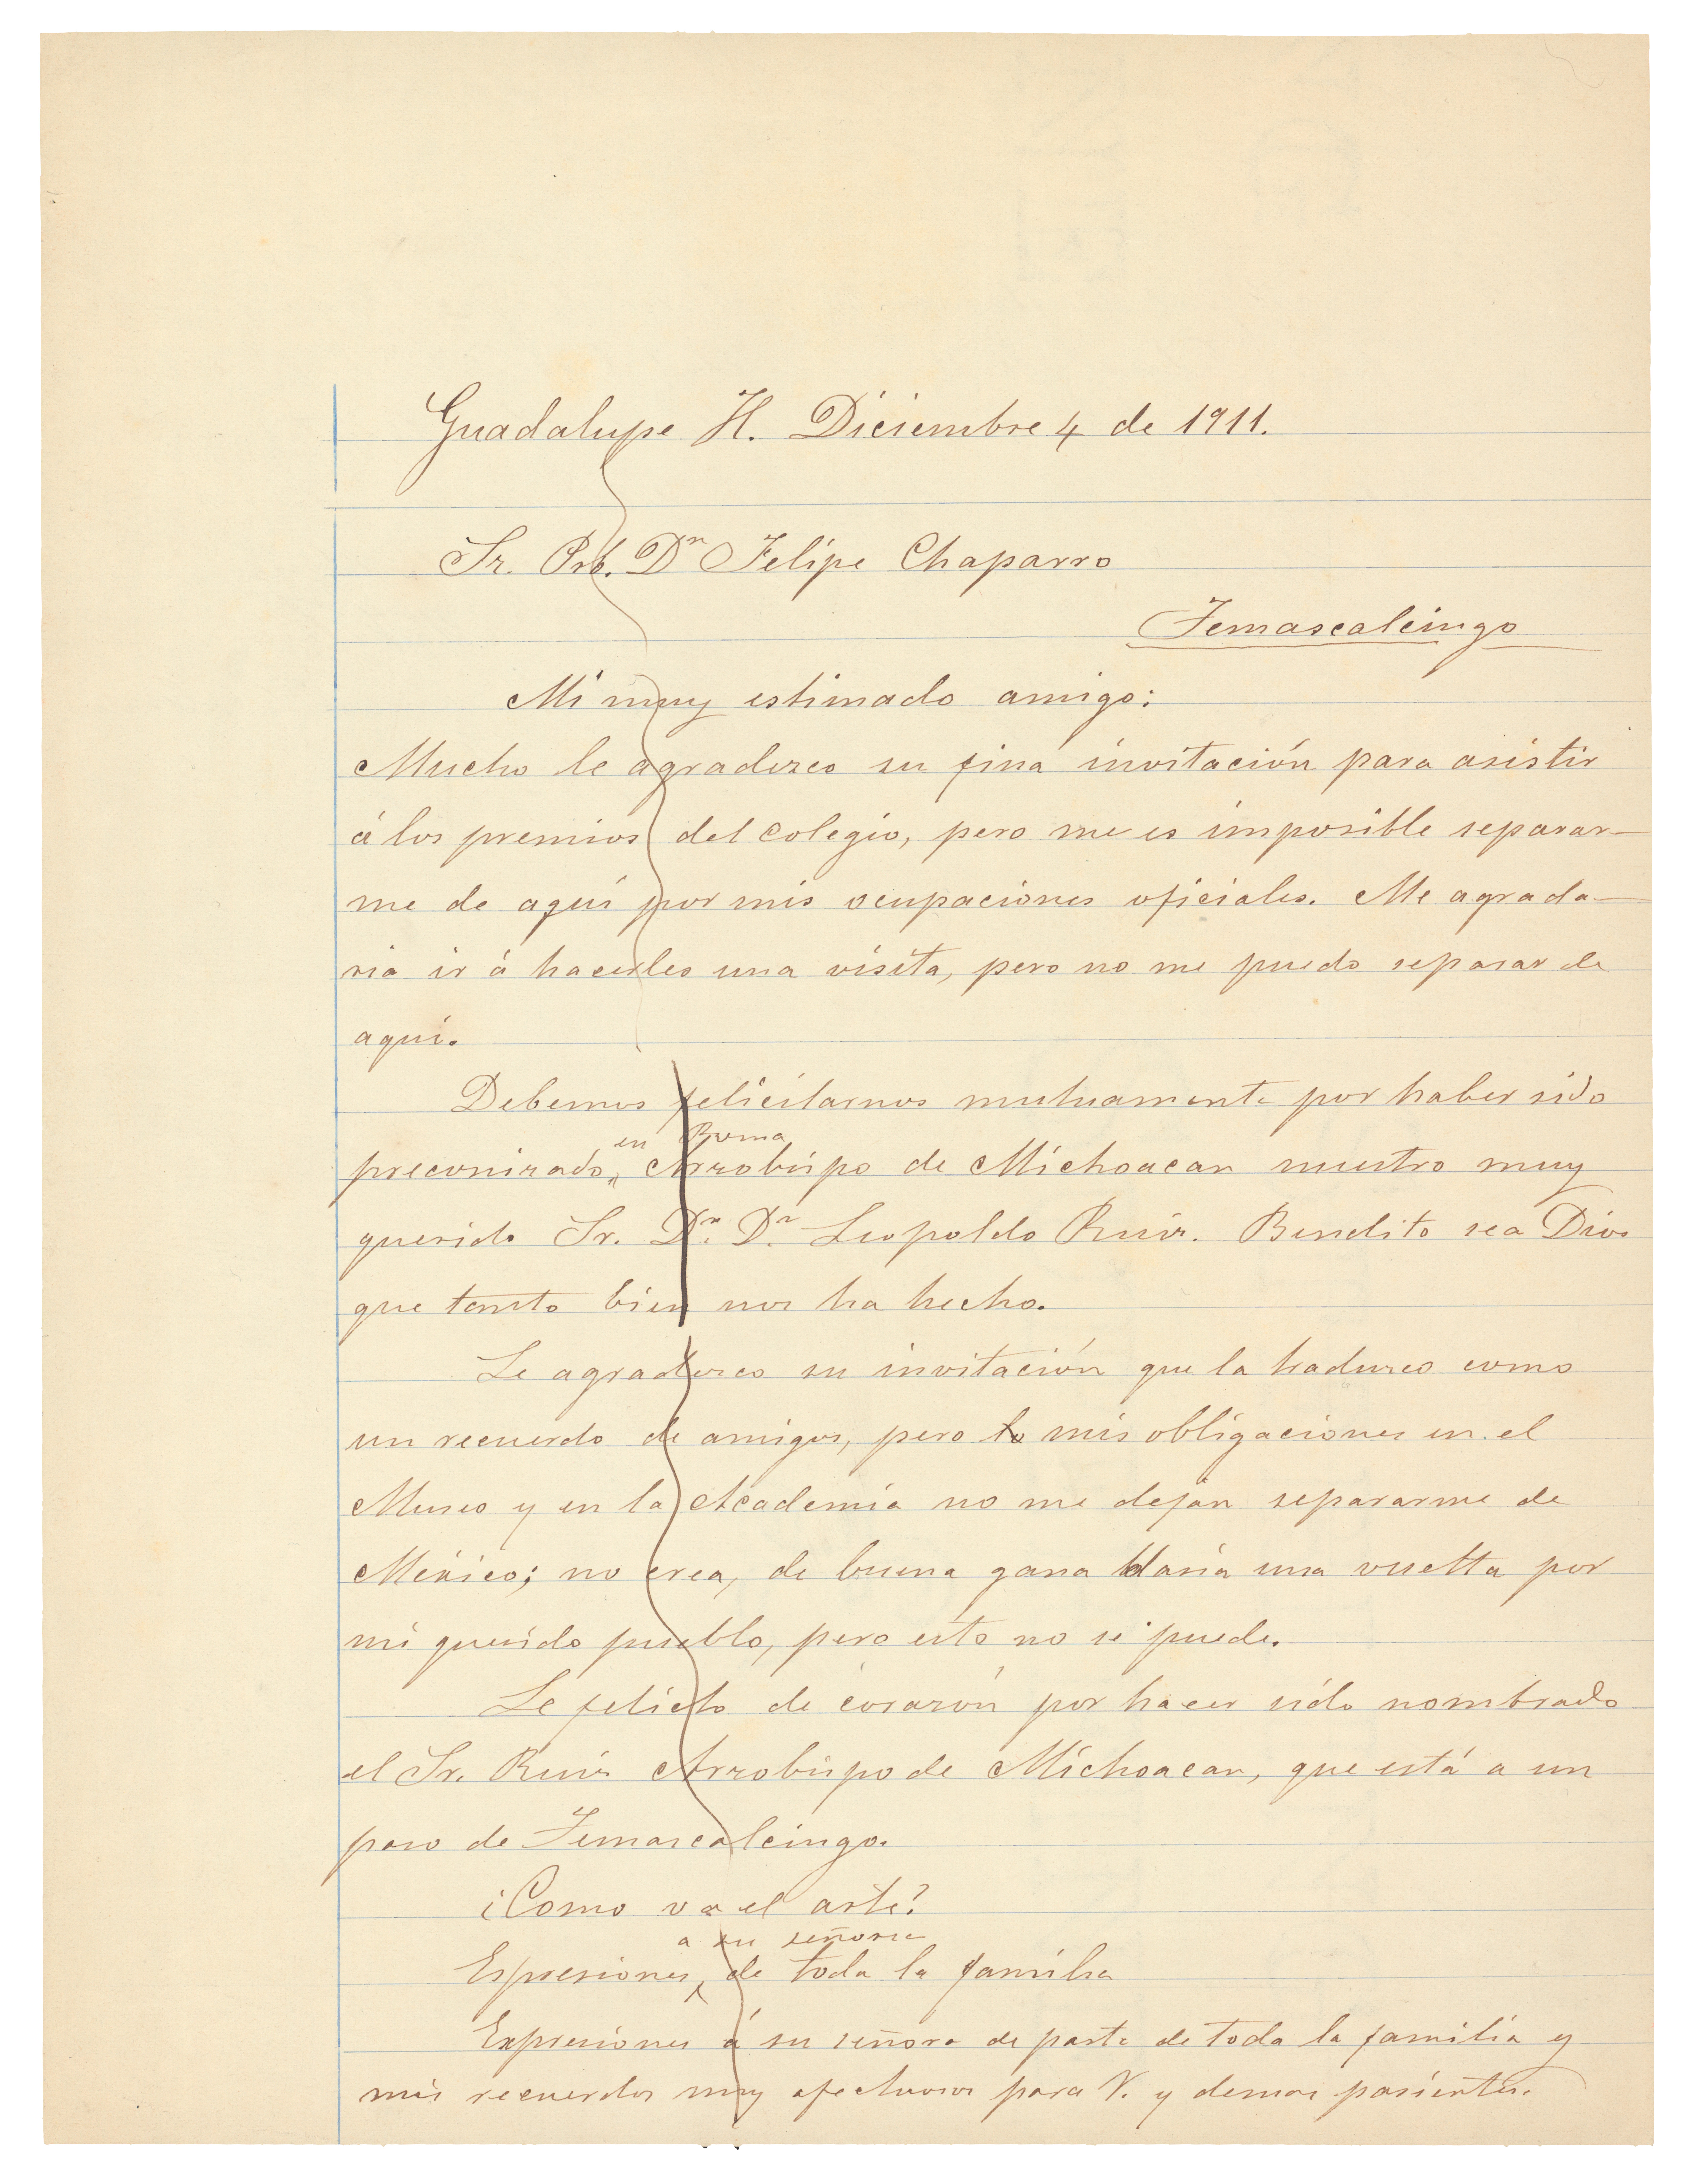 Guadalupe H. Diciembre 4 de 1911.
Sr. Prb. Dn Felipe Chaparro
Temascalcingo
Mi muy estimado amigo:
Mucho le agradezco su fina invitación para asistir
á los premios del colegio, pero me es imposible separar-
me de aquí por mis ocupaciones oficiales. Me agrada-
ria ir á hacerles una visita, pero no me puedo separar de
aquí.
Debemos felicitarnos mutuamente por haber sido
en Roma
preconizado, Arzobispo de Michoacan nuestro muy
querido Sr. Dr. Dn. Leopoldo Ruiz. Bendito sea Dios
que tanto bien nos ha hecho.
Le agradezco su invitación que la traduzco como
un recuerdo de amigos, pero lo mis obligaciones en el
Museo y en la Academia no me dejan separarme de
México; no crea, de buena gana daría una vuelta por
mi querido pueblo, pero esto no se puede.
Le felicito de corazón por hacer sido nombrado
el Sr. Ruiz Arzobispo de Michoacan, que está a un
paso de Temascalcingo.
¿Como va el arte?
a su señora
Espresiones, de toda la familia
Expresiones á su señora de parte de toda la familia y
mis recuerdos muy afectuosos para V. y demas parientes.